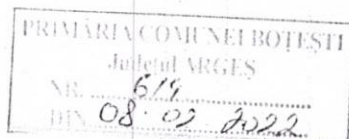 PRIMĂRIA COMUNEI BOTEȘTI
Județul ARGEȘ
NR. 619
DIN 08.02 2022